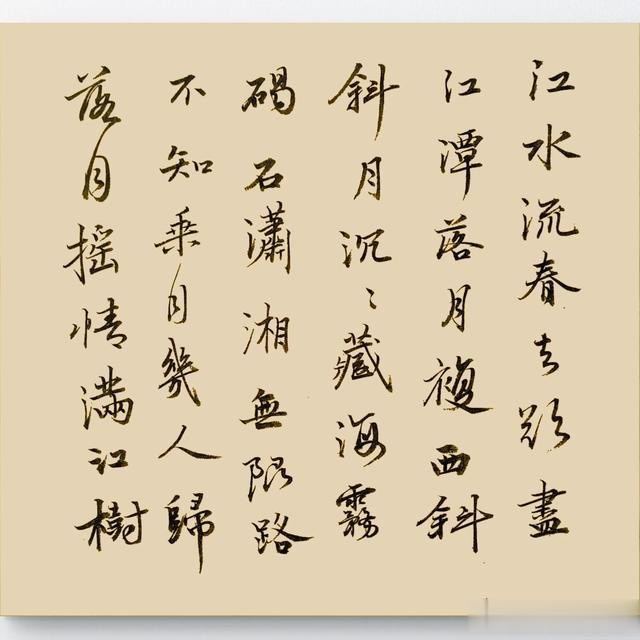 江水流春去欲盡
江潭落月複西斜
斜月沉〻藏海霧
碣石瀟湘無限路
不知乘月幾人歸
落月摇情滿江樹